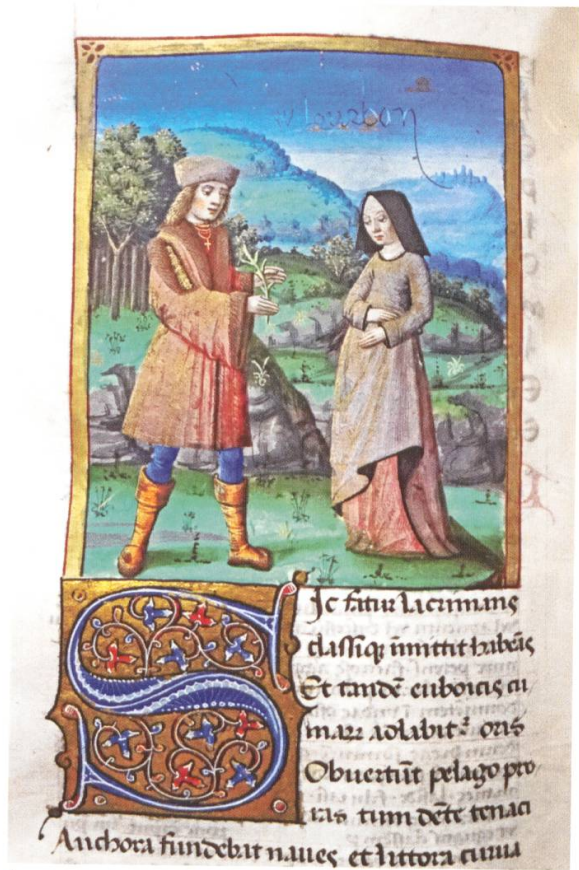 bourbon
Sic fatur lacrimans
classiq; inmittit habēas
Et tandē euboicis cu
marꝝ adlabitᷣ oris
Obuertūt pelago pro
ras tum dēte tenaci
Anchora fundebat naues et littora curua